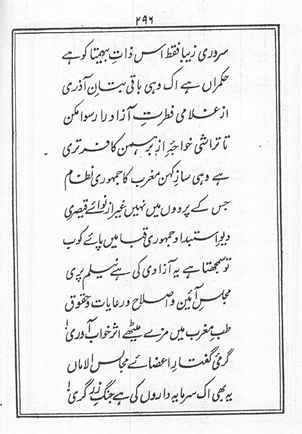 ۲۹۶
سروری زیبا فقط اس ذاتِ بے ہمتا کو ہے
حکمراں ہے اک وہی باقی بتانِ آذری
از غلامی فطرتِ آزاد را رسوا مکن
تا تراشی خواجۂ از برہمن کافر تری
ہے وہی سازِ کہن مغرب کا جمہوری نظام
جس کے پردوں میں نہیں غیر از نوائے قیصری
دیوِ استبداد جمہوری قبا میں پائے کوب
تو سمجھتا ہے یہ آزادی کی ہے نیلم پری
مجلسِ آئین و اصلاح و رعایات و حقوق
طبِ مغرب میں مزے میٹھے اثر خواب آوری!
گرمیِ گفتارِ اعضائے مجالس الاماں
یہ بھی اک سرمایہ داروں کی ہے جنگِ زرگری!